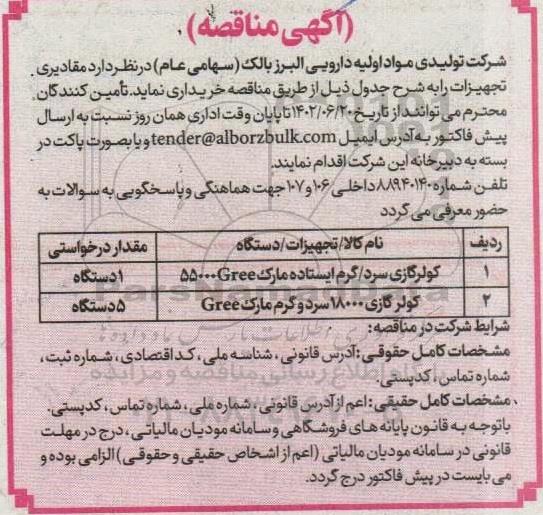 (آگهی مناقصه)
شرکت تولیدی مواد اولیه دارویی البرز بالک (سهامی عام) در نظر دارد مقادیری
تجهیزات را به شرح جدول ذیل از طریق مناقصه خریداری نماید. تأمین کنندگان
محترم می توانند از تاریخ ۱۴۰۲/۰۶/۲۰ تا پایان وقت اداری همان روز نسبت به ارسال
پیش فاکتور به آدرس ایمیل tender@alborzbulk.com و یا بصورت پاکت در
بسته به دبیرخانه این شرکت اقدام نمایند.
تلفن شماره ۸۸۹۴۰۱۴۰ داخلی ۱۰۶ و ۱۰۷ جهت هماهنگی و پاسخگویی به سوالات به
حضور معرفی می گردد
ردیف نام کالا/ تجهیزات/ دستگاه مقدار درخواستی
۱ کولر گازی سرد/گرم ایستاده مارک Gree ۵۵۰۰۰ ۱ دستگاه
۲ کولر گازی ۱۸۰۰۰ سرد و گرم مارک Gree ۵ دستگاه
شرایط شرکت در مناقصه:
مشخصات کامل حقوقی: آدرس قانونی، شناسه ملی، کد اقتصادی، شماره ثبت،
شماره تماس، کدپستی.
مشخصات کامل حقیقی: اعم از آدرس قانونی، شماره ملی، شماره تماس، کدپستی.
با توجه به قانون پایانه های فروشگاهی و سامانه مودیان مالیاتی، درج در مهلت
قانونی در سامانه مودیان مالیاتی (اعم از اشخاص حقیقی و حقوقی) الزامی بوده و
می بایست در پیش فاکتور درج گردد.